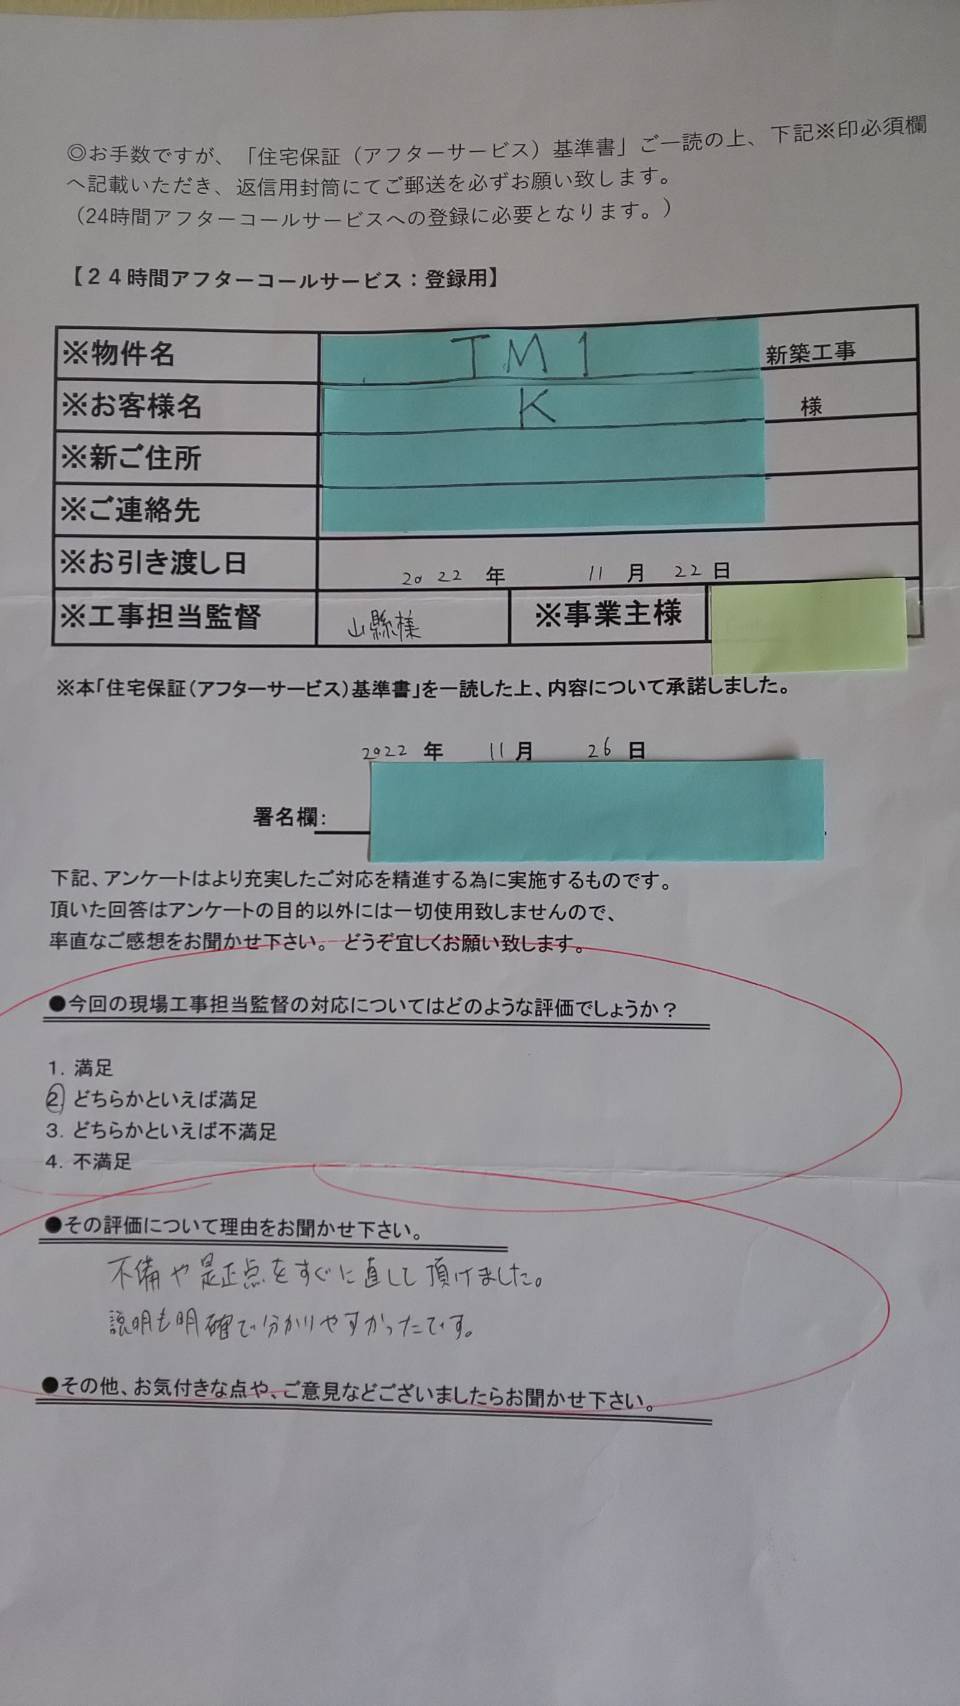 ◎お手数ですが、「住宅保証（アフターサービス）基準書」ご一読の上、下記※印必須欄
へ記載いただき、返信用封筒にてご郵送を必ずお願い致します。
（24時間アフターコールサービスへの登録に必要となります。）
【２４時間アフターコールサービス：登録用】
※物件名 TM1 新築工事
※お客様名 K 様
※新ご住所
※ご連絡先
※お引き渡し日 2022 年 11 月 22 日
※工事担当監督 山縣様 ※事業主様
※本「住宅保証（アフターサービス）基準書」を一読した上、内容について承諾しました。
2022 年 11 月 26 日
署名欄：
下記、アンケートはより充実したご対応を精進する為に実施するものです。
頂いた回答はアンケートの目的以外には一切使用致しませんので、
率直なご感想をお聞かせ下さい。 どうぞ宜しくお願い致します。
●今回の現場工事担当監督の対応についてはどのような評価でしょうか？
1. 満足
2. どちらかといえば満足
3. どちらかといえば不満足
4. 不満足
●その評価について理由をお聞かせ下さい。
不備や是正点をすぐに直して頂けました。
説明も明確で分かりやすかったです。
●その他、お気付きな点や、ご意見などございましたらお聞かせ下さい。